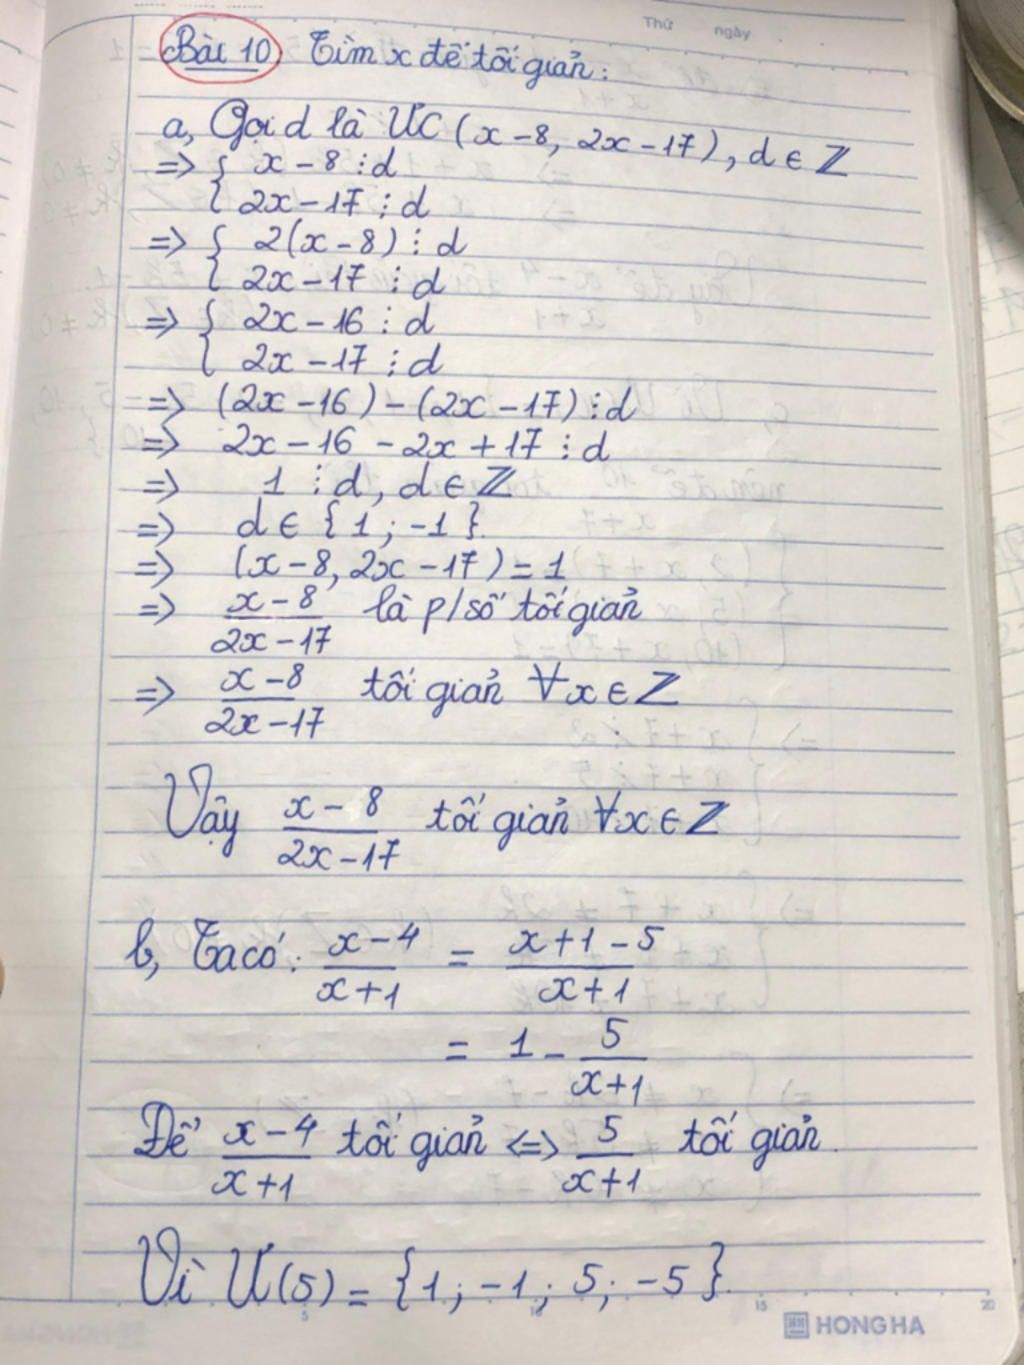 Thứ ngày
Bài 10 Tìm x để tối giản:
a, Gọi d là ƯC (x-8, 2x-17), d ∈ Z
=> { x-8 ⋮ d
{ 2x-17 ⋮ d
=> { 2(x-8) ⋮ d
{ 2x-17 ⋮ d
=> { 2x-16 ⋮ d
{ 2x-17 ⋮ d
=> (2x-16)-(2x-17) ⋮ d
=> 2x-16-2x+17 ⋮ d
=> 1 ⋮ d, d ∈ Z
=> d ∈ {1; -1}.
=> (x-8, 2x-17) = 1
=> x-8/2x-17 là p/số tối giản
=> x-8/2x-17 tối giản ∀x ∈ Z
Vậy x-8/2x-17 tối giản ∀x ∈ Z
b, Ta có: x-4/x+1 = x+1-5/x+1
= 1 - 5/x+1
Để x-4/x+1 tối giản <=> 5/x+1 tối giản.
Vì Ư(5) = {1; -1; 5; -5}
5 10 15 20
HONG HA